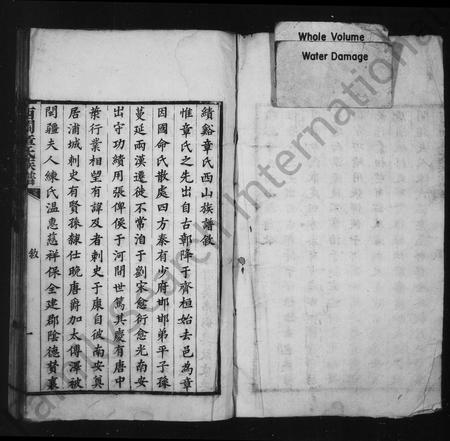 Whole Volume
Water Damage
績谿章氏西山族譜敘
惟章氏之先出自古鄣降于齊桓始去邑為章
因國命氏散處四方秦有少府邯邯弟平子孫
蔓延兩漢遷徙不常洎于劉宋愈衍愈光南安
出守功績用張俾侯于河間世篤其慶有唐中
葉行業相望有諱及者刺史于康自彼南安奠
居浦城刺史有賢孫隸仕晚唐爵加太傅澤被
閩疆夫人練氏溫惠慈祥保全建郡陰德贊襄
章氏族譜
敘
一